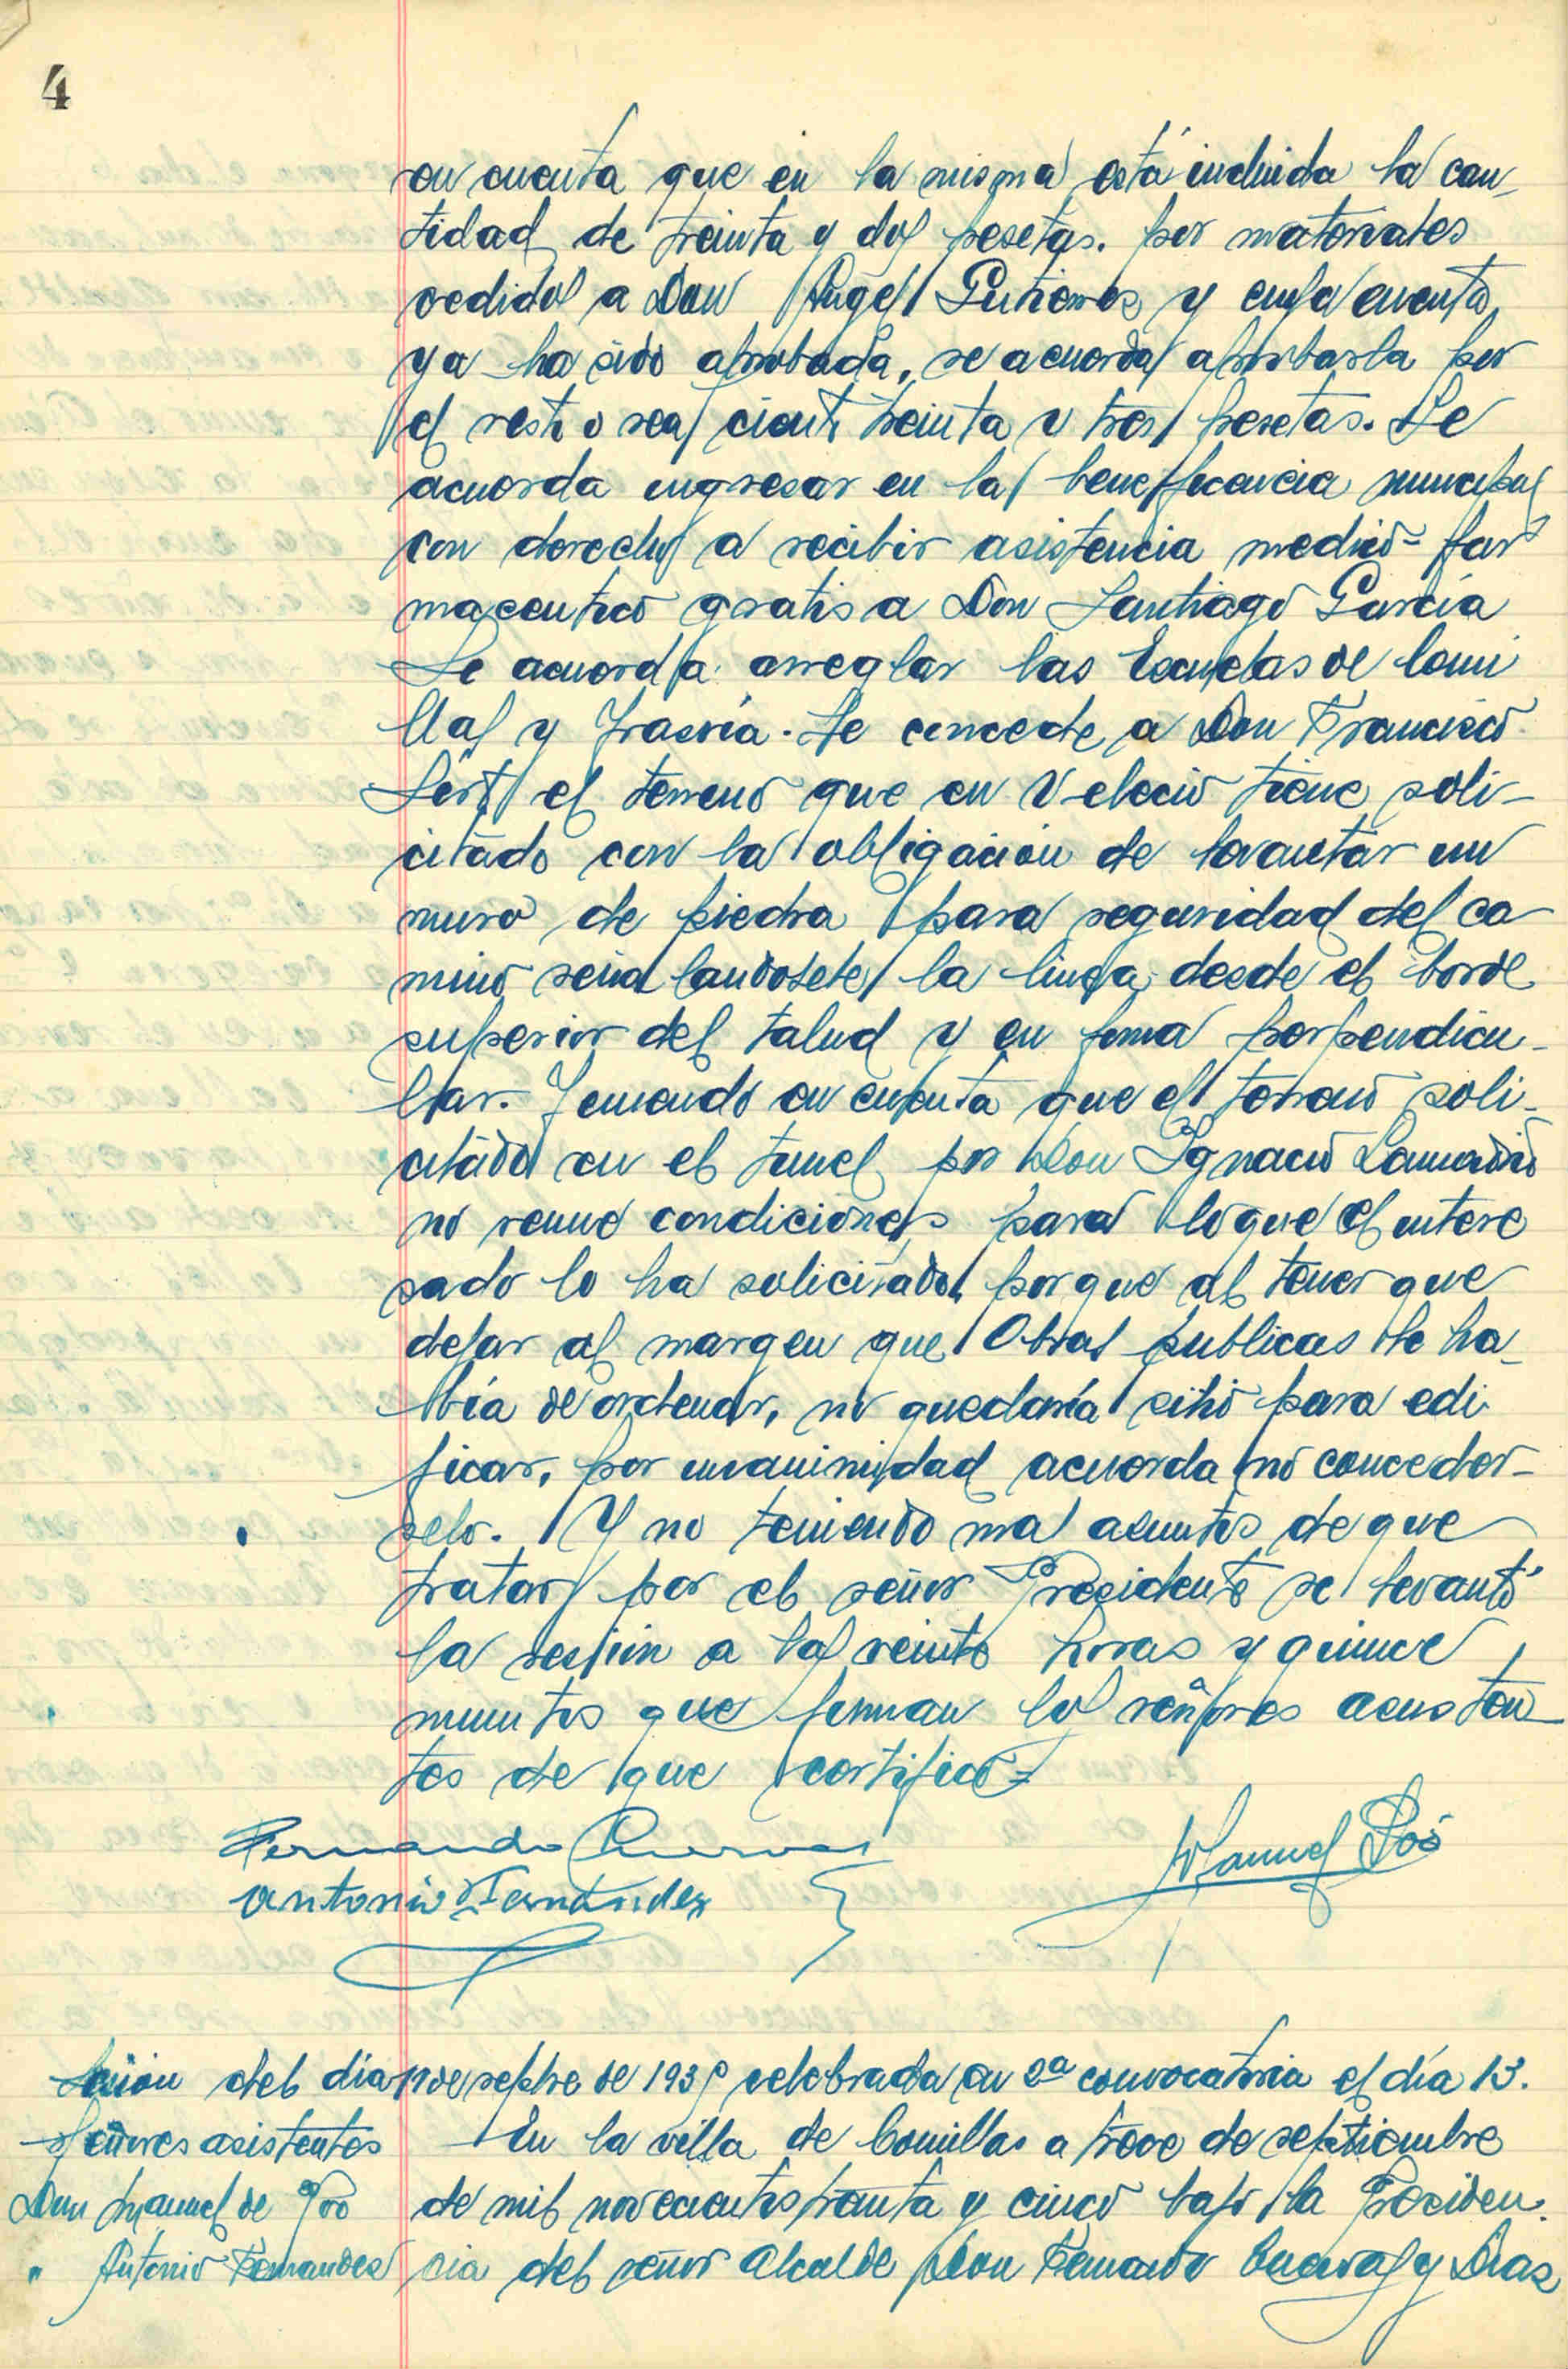 4
en cuenta que en la misma está incluida la can-
tidad de treinta y dos pesetas. por materiales
cedidos a Don Angel Gutierres y cuya cuenta
ya ha sido aprobada, se acuerda aprobarla por
el resto o sea ciento treinta y tres pesetas. Se
acuerda ingresar en la beneficencia municipal
con derecho a recibir asistencia medico-far
maceutico gratis a Don Santiago García
Se acuerda arreglar las Escuelas de Comi
llas y Trasvia. Se concede a Don Francisco
Sert el terreno que en Velecio tiene soli-
citado con la obligación de levantar un
muro de piedra para seguridad del ca
mino señalandosele la linea desde el borde
superior del talud y en forma perpendicu-
lar. Teniendo en cuenta que el terreno soli-
citado en el tunel por Don Ignacio Lamadrid
no reune condiciones para lo que el intere
sado lo ha solicitado porque al tener que
dejar al margen que Obras publicas le ha-
bía de ordenar, no quedaría sitio para edi
ficar, por unanimidad acuerda no conceder-
selo. Y no teniendo mas asuntos de que
tratar por el señor Presidente se levantó
la sesión a las veinte horas y quince
minutos que firman los señores asisten-
tes de que certifico=
Fernando Cuevas
Manuel Poo
Antonio Fernández
Sesión del dia 11 de sepbre de 1935 celebrada en 2ª convocatoria el día 13.
Señores asistentes
En la villa de Comillas a trece de septiembre
Don Manuel de Poo
de mil novecientos treinta y cinco bajo la Presiden.
" Antonio Fernandez
cia del señor Alcalde Don Fernando Cuevas y Dias